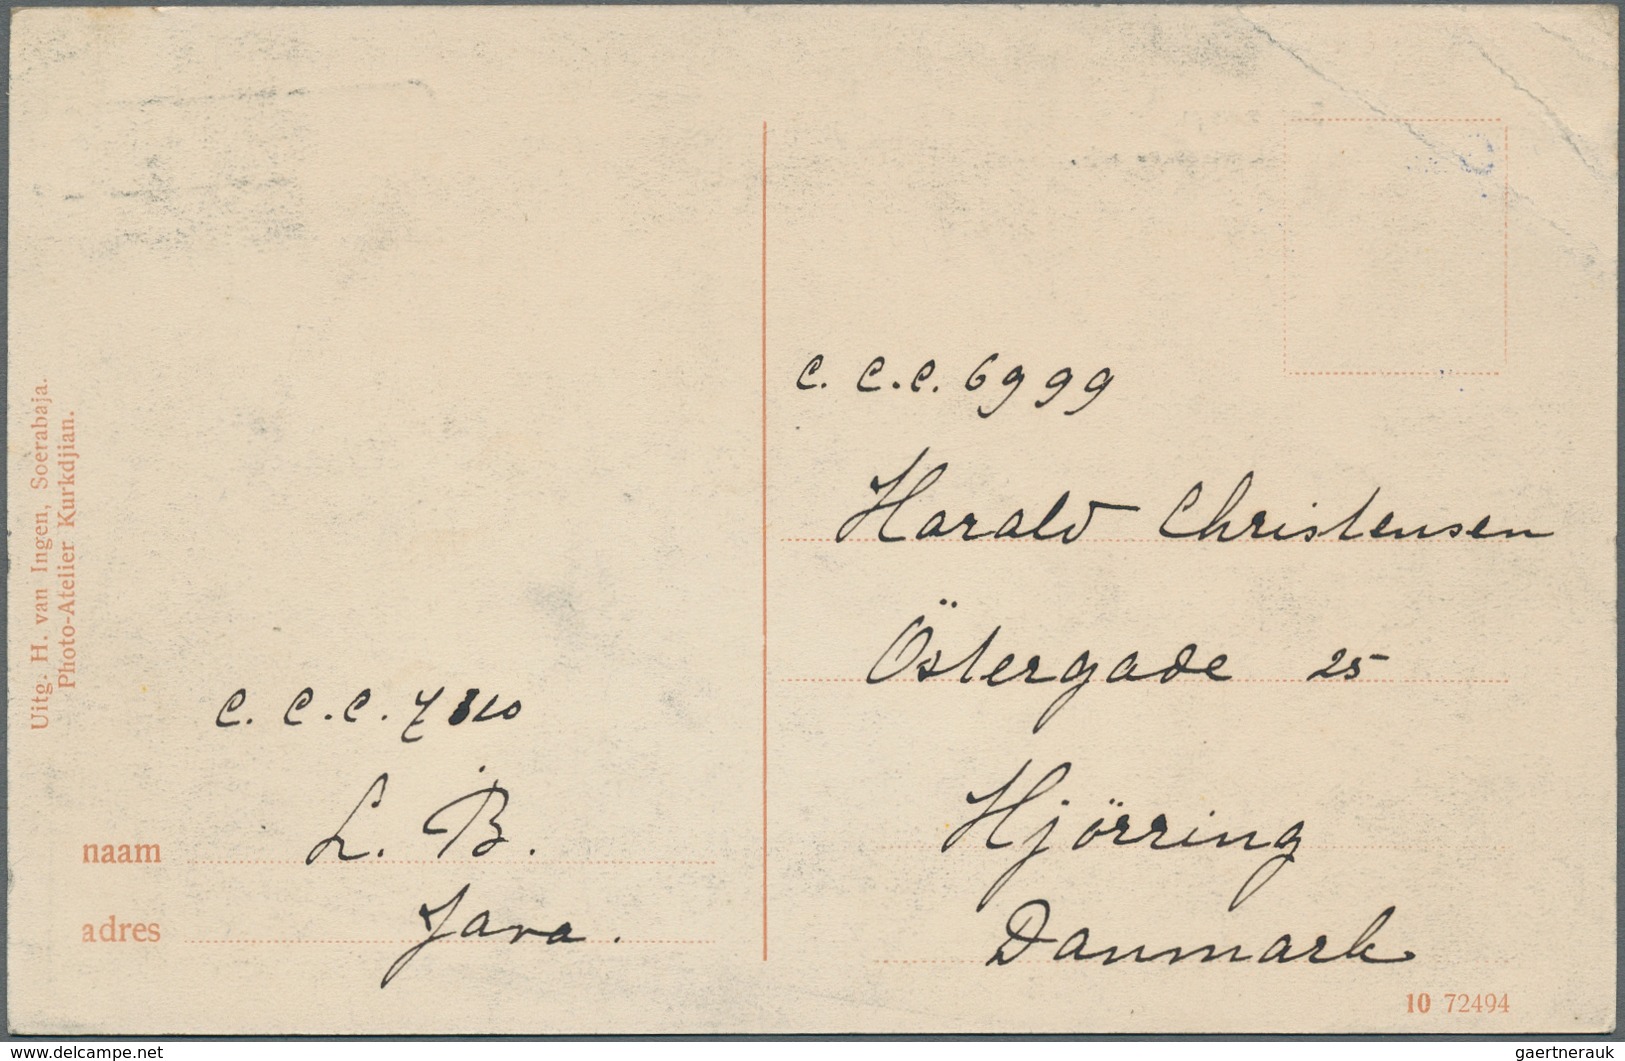 Uitg. H. van Ingen, Soerabaja.
Photo-Atelier Kurkdjian.
C. C. C. 7310
L. B.
naam
Java.
adres
C. C. C. 6999
Harald Christensen
Östergade 25
Hjörring
Danmark
10 72494
www.delcampe.net
gaertnerauk